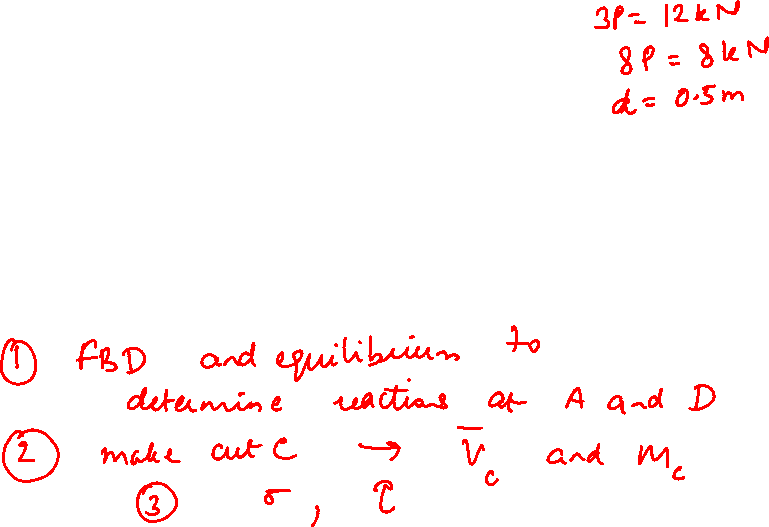 3P = 12 kN
8P = 8 kN
d = 0.5 m
① FBD and equilibrium to
determine reactions at A and D
② make cut C → V̄c and Mc
③ σ, τ